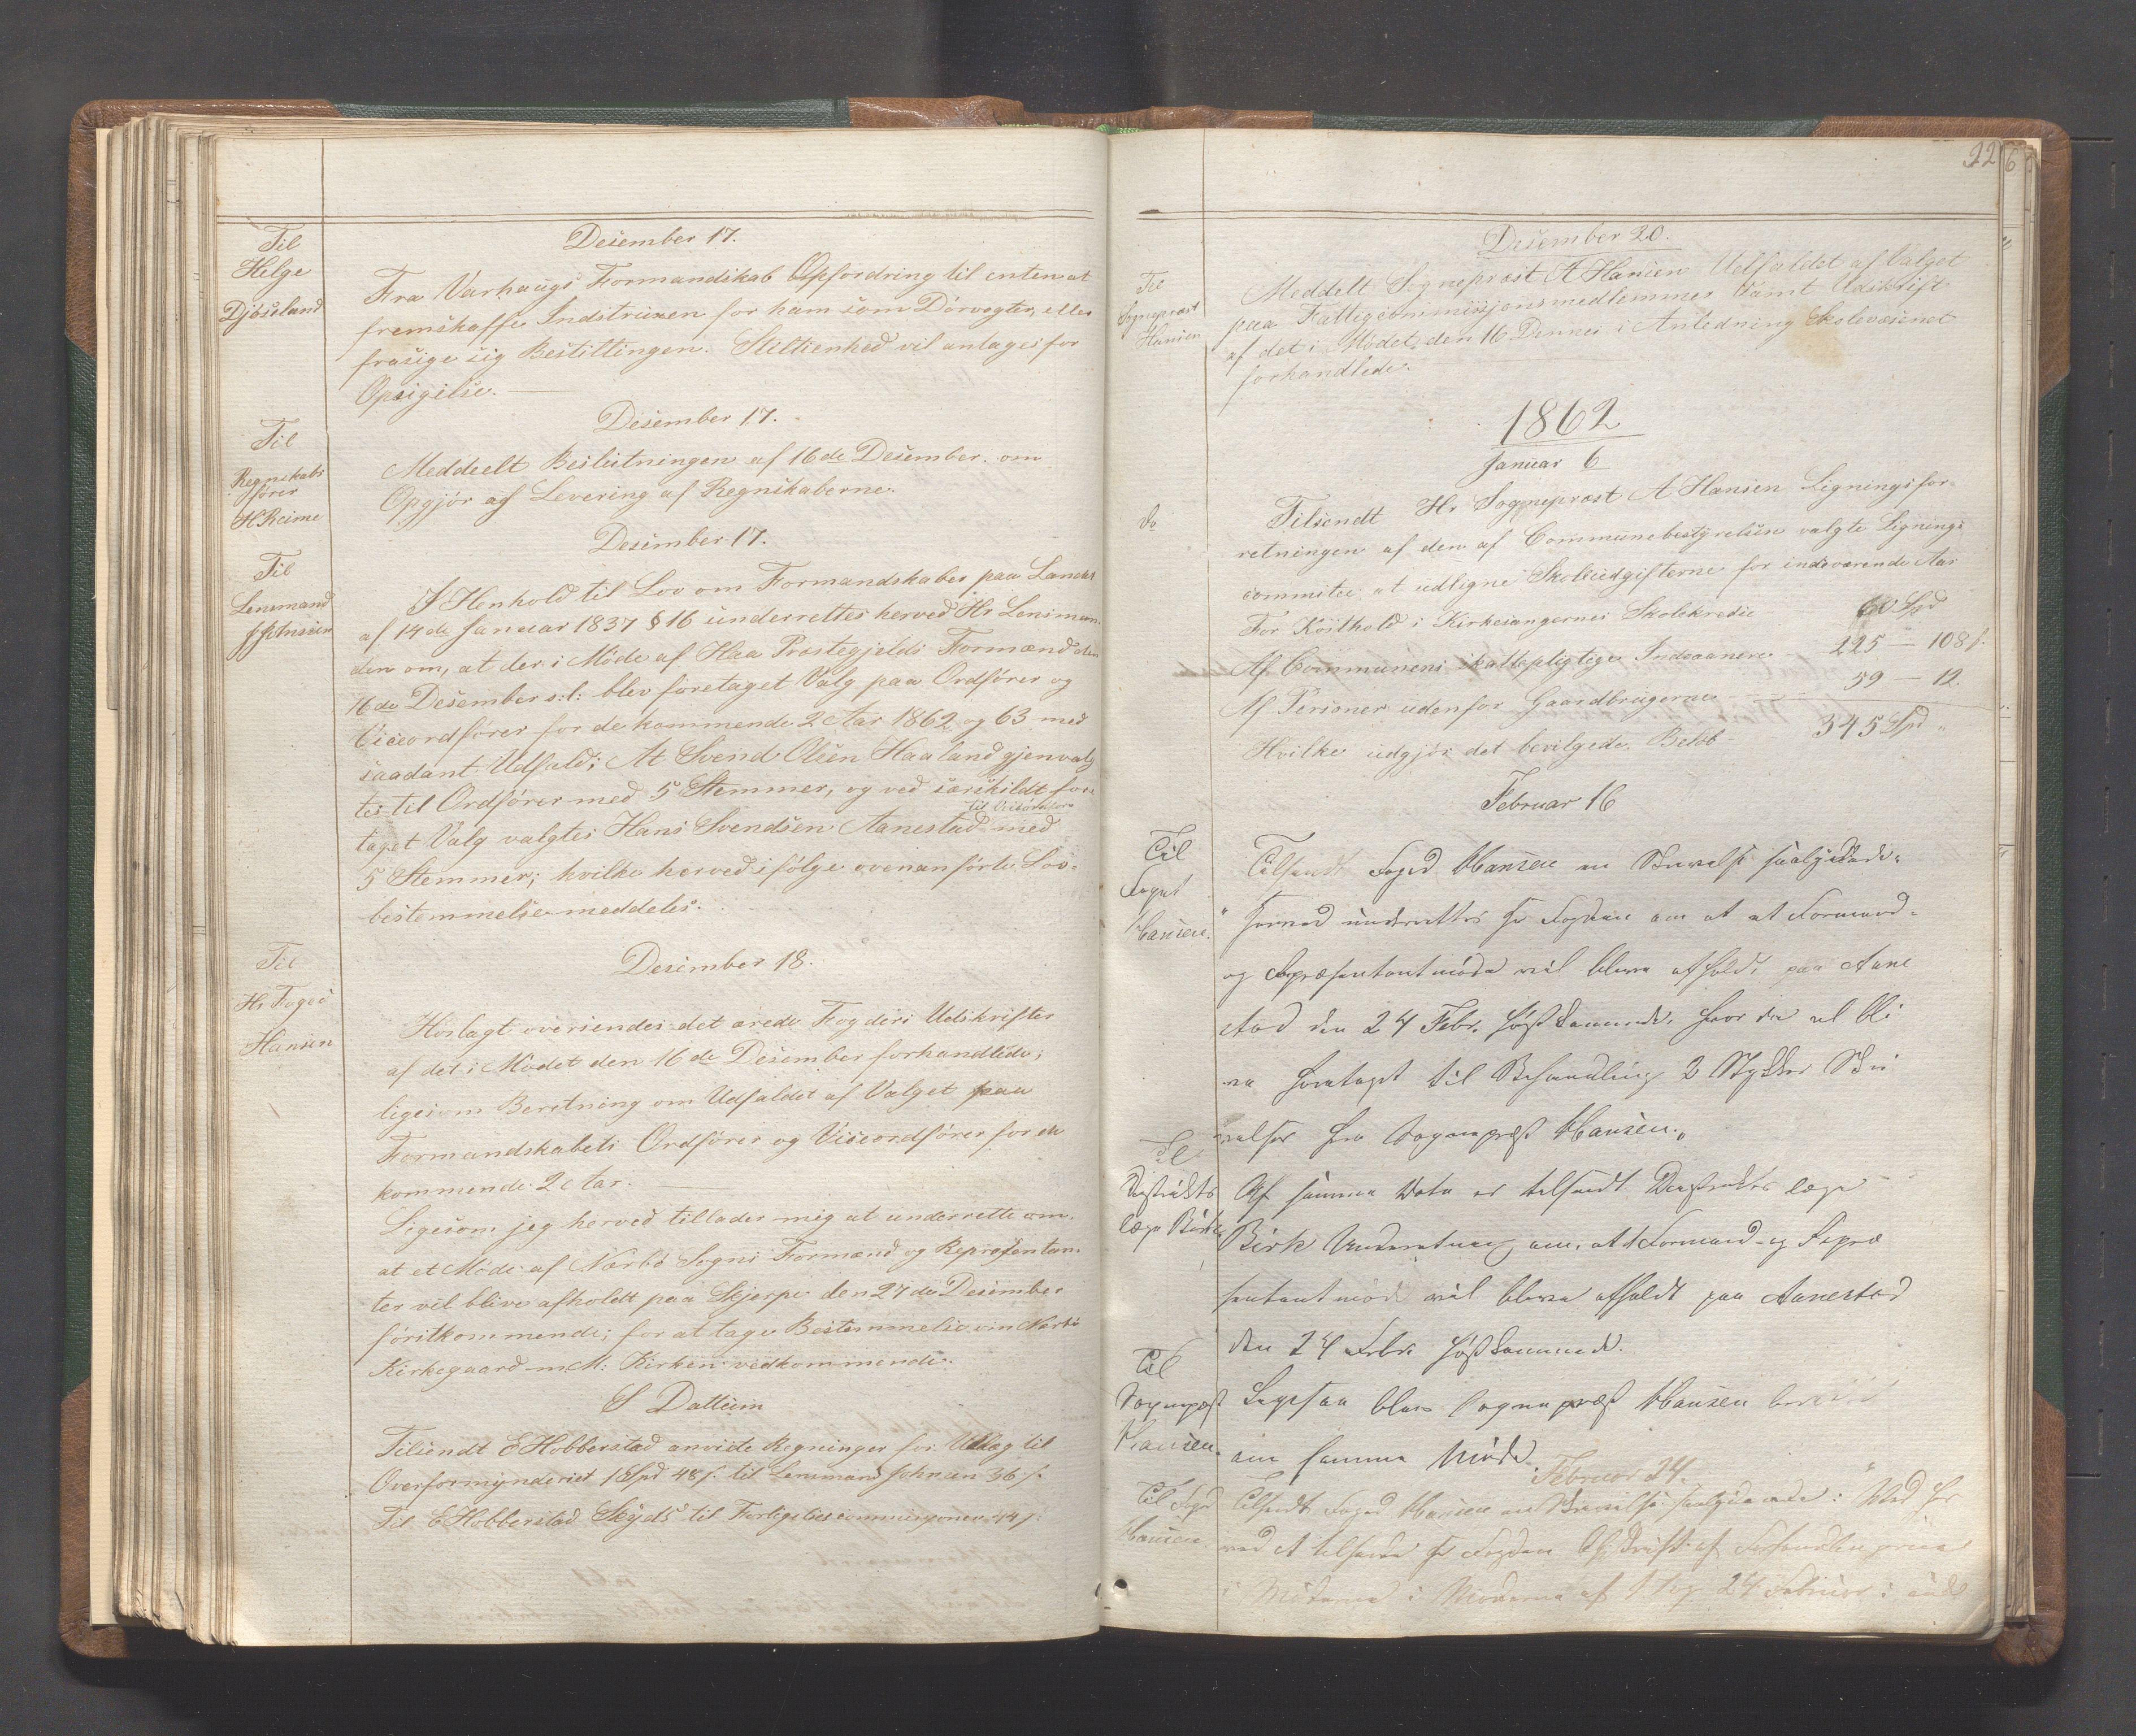 Desember 17.
Til
Helge
Djøseland
Fra Varhaugs Formandskab Opfordring til enten at
fremskaffe Indstruxen for ham som Dørvogter, eller
frasige sig Bestillingen. Stiltienhed vil antages for
Opsigilse.
Desember 17.
Til
Regnskabs
fører
H Reime
Meddeelt Beslutningen af 16de Desember. om
Opgjør af Levering af Regnskaberne.
Desember 17.
Til
Lensmand
J Johnsen
I Henhold til Lov om Formandskaber paa Landet
af 14de Januar 1837 § 16 underrettes herved Hr Lensman
den om, at der i Møde af Haa Præstegjelds Formænd den
16de Desember s: l: blev foretaget Valg paa Ordfører og
Viceordfører for de kommende 2 Aar 1862 og 63 med
saadant Udfald: At Svend Olsen Haaland gjenvalg
tes til Ordfører med 5 Stemmer, og ved særskildt fore
taget Valg valgtes Hans Svendsen Aanestad til Viseordfører med
5 Stemmer; hvilke herved ifølge ovenanførte Lov-
bestemmelse meddeles.
Desember 18.
Til
Hr Foged
Hansen
Hoslagt oversendes det ærede Fogderi Udskrifter
af det i Mødet den 16de Desember forhandlede;
ligesom Beretning om Udfaldet af Valget paa
Formandskabets Ordfører og Viseordfører for de
kommende 2 Aar.
Ligesom jeg herved tillader mig at underrette om,
at et Møde af Nærbø Sogns Formænd og Repræsentan
ter vil blive afholdt paa Skjerpe den 27de Desember
førstkommende; for at tage Bestemmelse om Nærbø
Kirkegaard m. M: Kirken vedkommende.
S Dattum
Tilsendt E Hobberstad anviste Regninger for Udlæg til
Overformynderiet 1 Spd 48 s. til Lensmand Johnsen 36 s.
Til E Hobberstad Skyds til Forligelsescommissjonen 44 s.
226
Desember 20.
Til
Sognepræst
Hansen
Meddelt Sognepræst A Hansen Udfaldet af Valget
paa Fattigcommissjonsmedlemmer Samt Udskrift
af det i Mødet den 16 Dennes i Anledning Skolevæsenet
forhandlede.
1862
Januar 6
Do
Tilsendt Hr Sognepræst A Hansen Ligningsfor-
retningen af den af Communebestyrelsen valgte Lignings
commitee at udligne Skoleudgifterne for indeværende Aar
For Kosthold i Kirkesangernes Skolekredse 60 Spd
Af Communens skattepligtige Indvaanere 225 – 108 s.
Af Personer udenfor Gaardbrugerne 59 – 12
Hvilke udgjør det bevilgede Beløb 345 Spd
Februar 16
Til
Foged
Hansen.
Tilsendt Foged Hansen en Skrivelse saalydende:
"Herved underrettes Hr Fogden om at et Formand-
og Repræsentantmøde vil blive afholdt paa Aane
stad den 24 Febr. førstkommende, hvor der vil bli
ve foretaget til Behandling 2 Stykker Skri
velser fra Sognepræst Hansen."
Til
Distrikts
læge Birk
Af samme Dato er tilsendt Distrikts læge
Birk Underretning om, at Formand- og Repræ
sentantmøde vil blive afholdt paa Aanestad
den 24 Febr. førstkommende.
Til
Sognepræst
Hansen.
Ligesaa blev Sognepræst Hansen
om samme Møde.
Februar 24.
Til Foged
Hansen
Tilsendt Foged Hansen en Skrivelse saalydende: "Ved her
ved at tilsende Hr Fogden Afskrift af Forhandlingerne
i Møderne i Møderne af 24 Februar